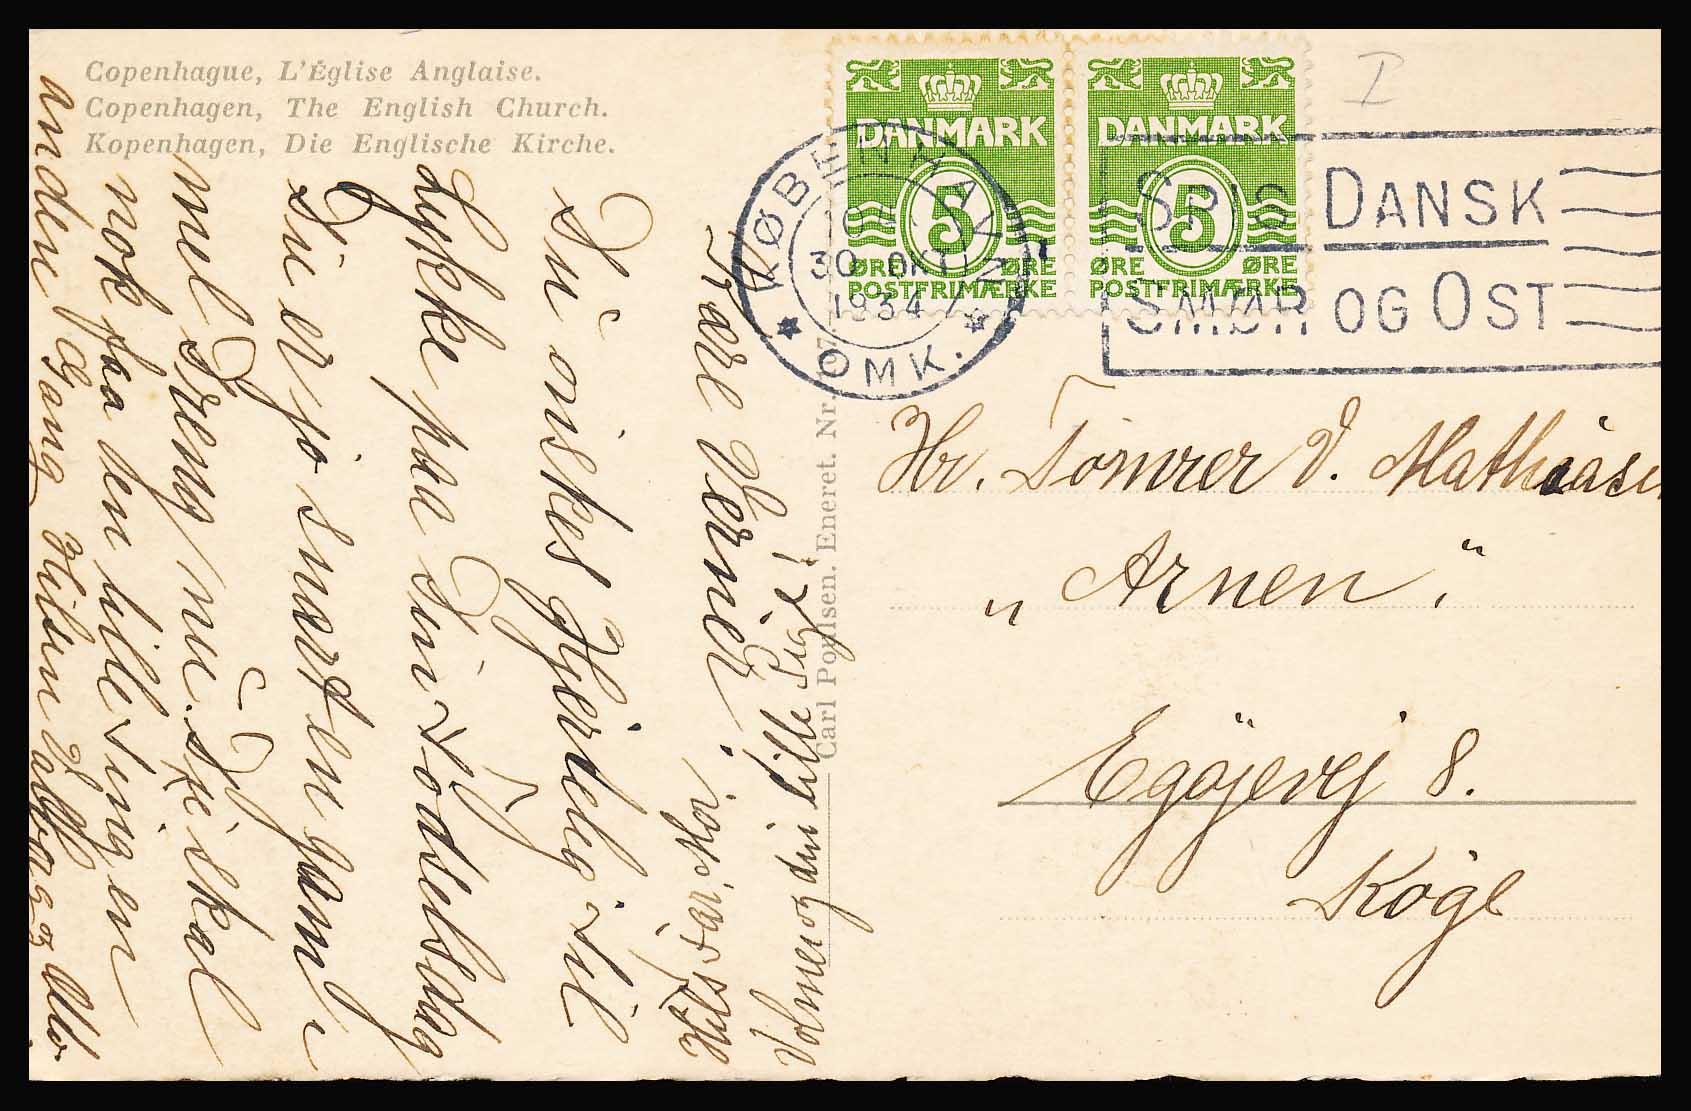 Copenhague, L'Église Anglaise.
Copenhagen, The English Church.
Kopenhagen, Die Englische Kirche.
DANMARK
5
ØRE ØRE
POSTFRIMÆRKE
DANMARK
5
ØRE ØRE
POSTFRIMÆRKE
KØBENHAVN
30 OKT
1934
* OMK. *
SPIS DANSK
SMØR OG OST
I
Carl Poulsen. Eneret. Nr. 97
Hr. Tömrer V. Mathiase
„Arnen".
Egöjevej 8.
Köge
Kære Verner.
Du önskes Hjertelig til
Lykke paa Din Födselsdag
Du er jo snart en gam
mel Dreng nu. Vi skal
nok faa den lille Ting en
anden Gang Hilsen
Hils Far, Mor
Volmer og din lille Pige!